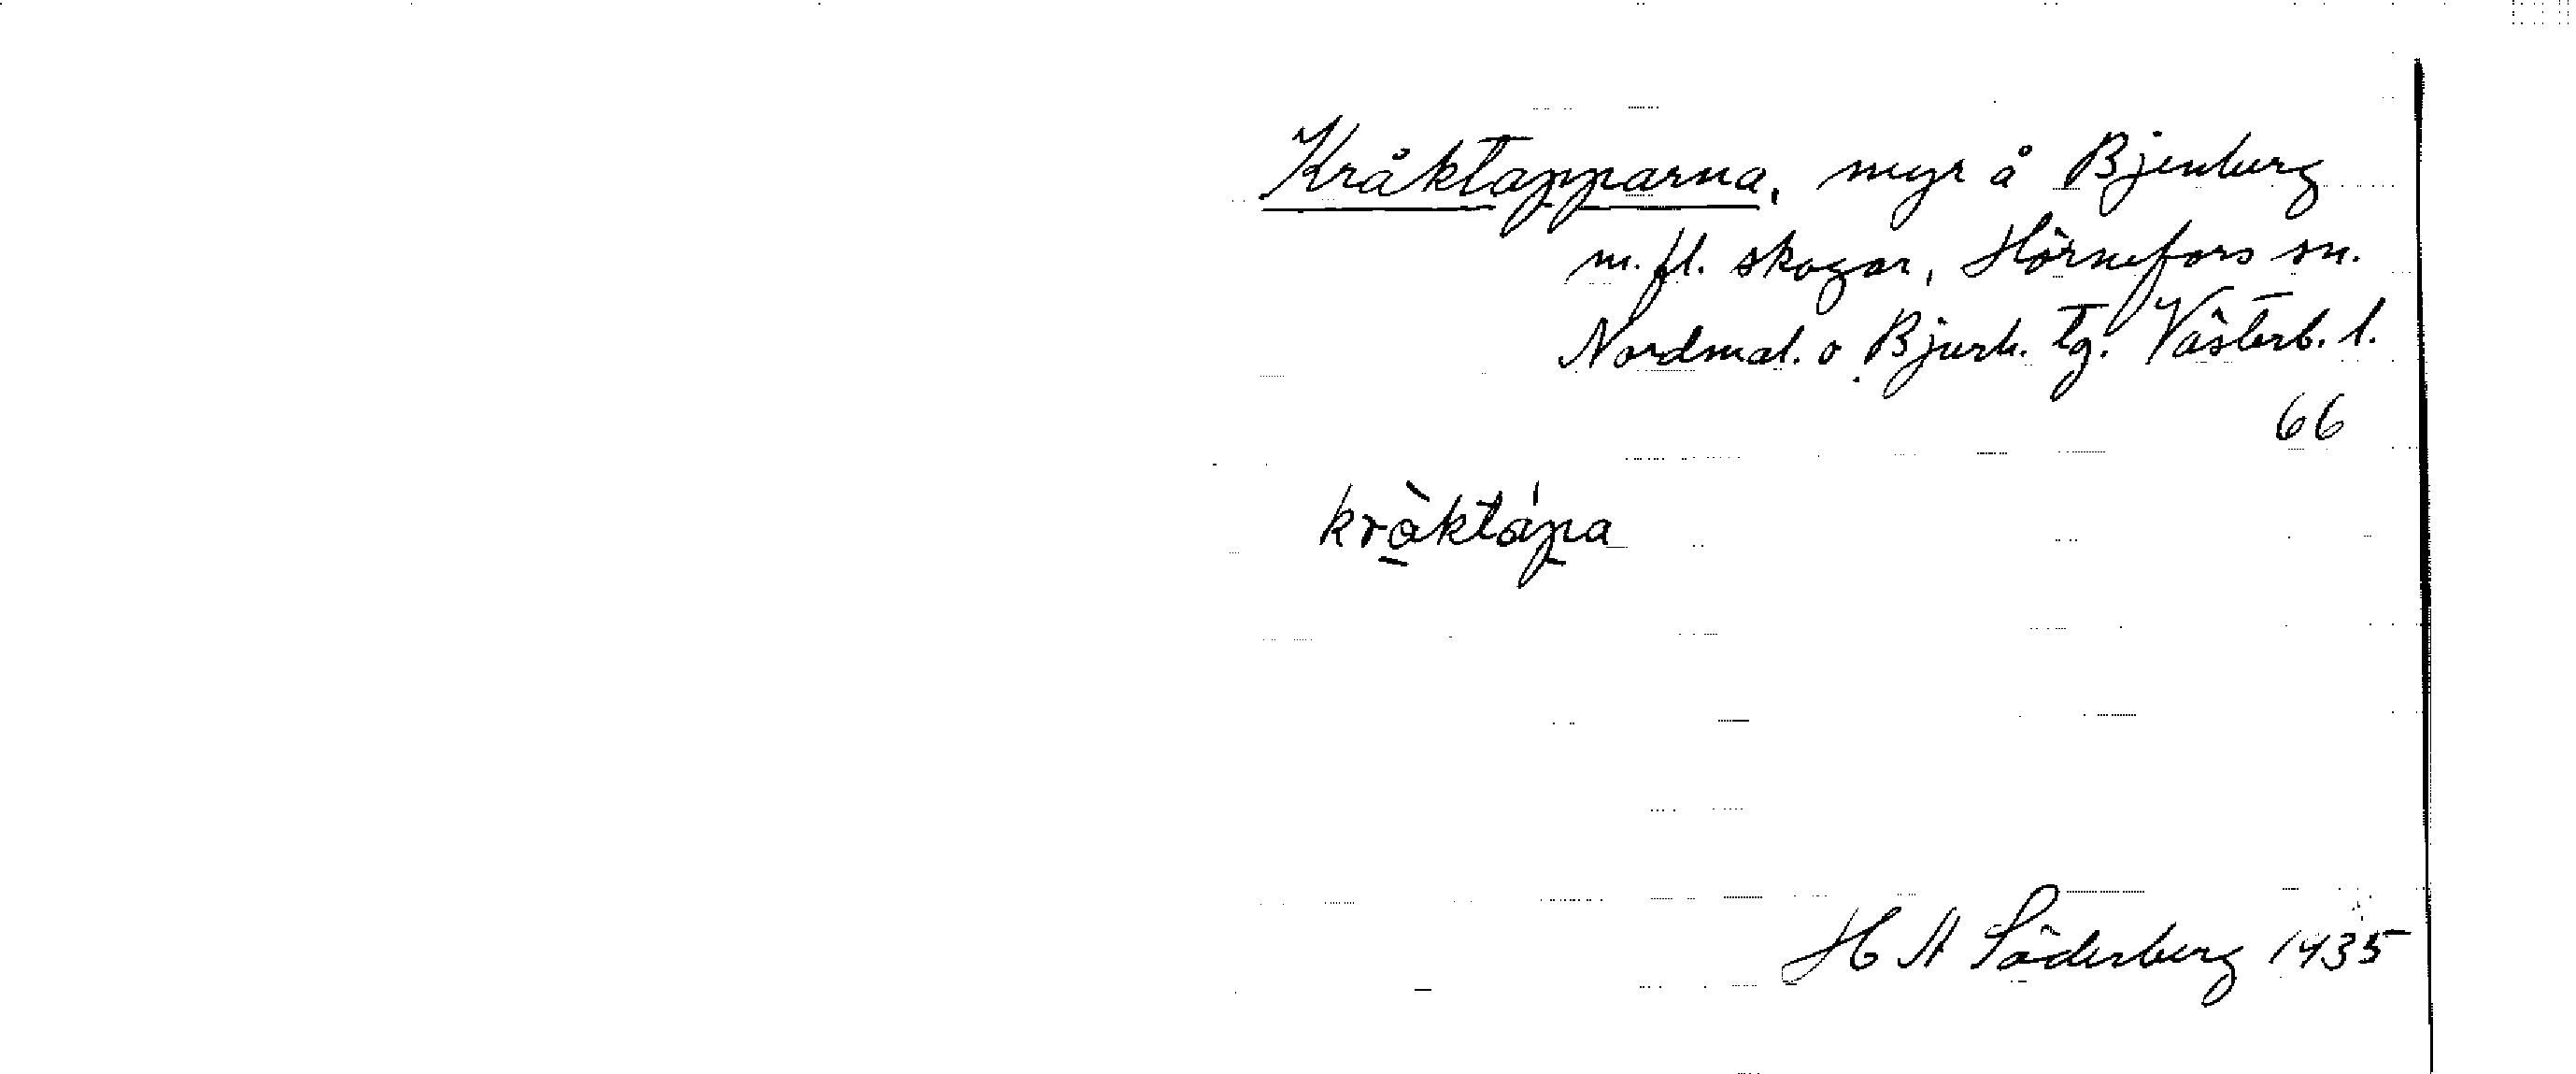 Kråktapparna, myr å Bjenberg
m. fl. skogar, Hörnefors sn.
Nordmal. o. Bjurh. tg. Västerb. l.
66
kråktápa
H A Söderberg 1935